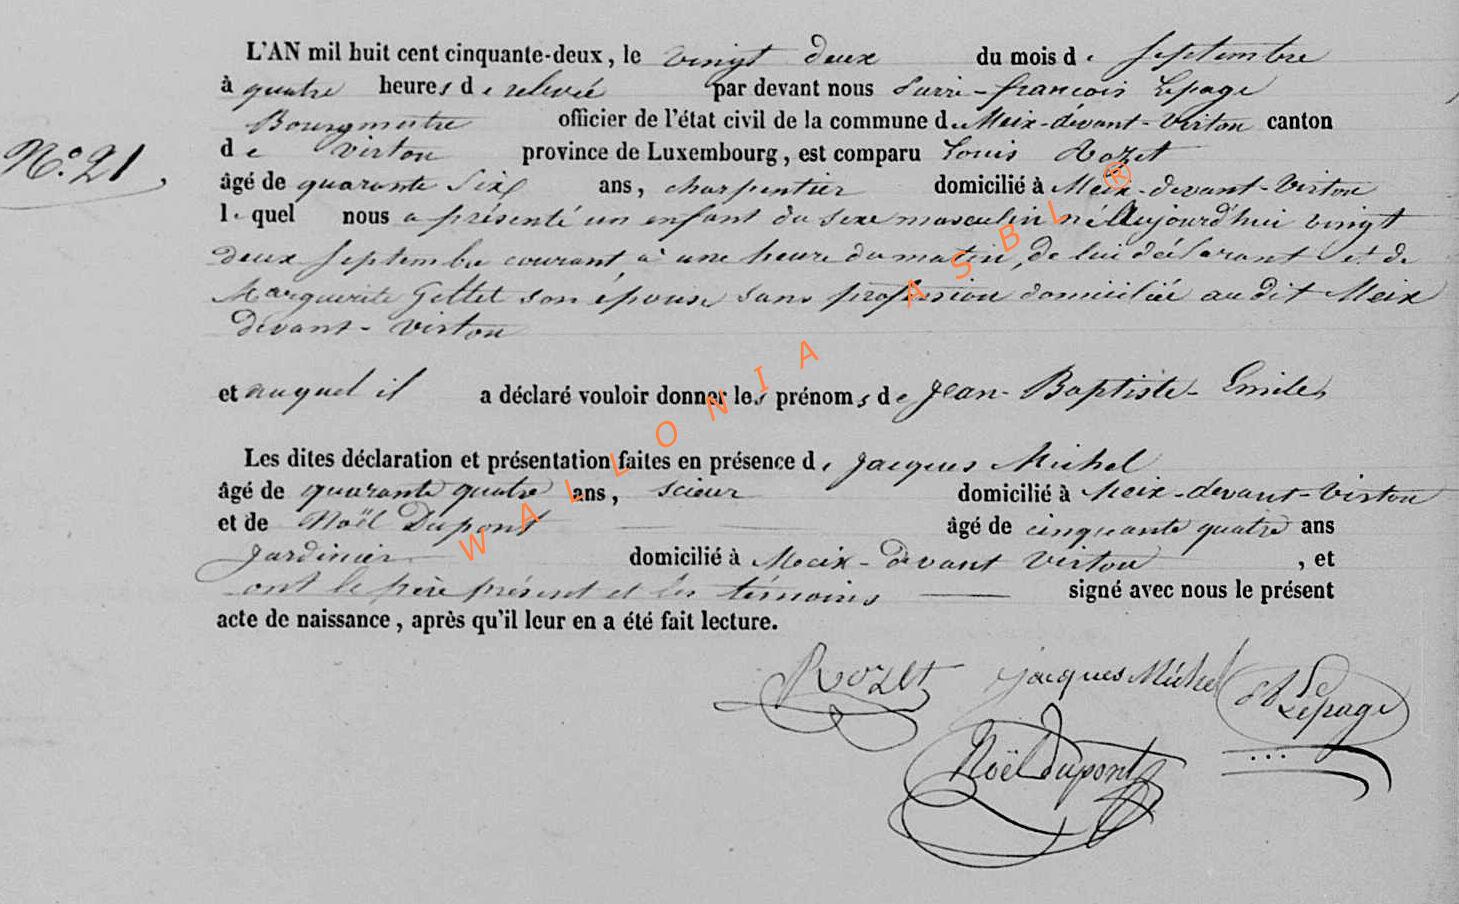 L'AN mil huit cent cinquante-deux, le vingt deux du mois de Septembre
à quatre heures de relevée par devant nous Pierre-françois Lepage
Bourgmestre officier de l'état civil de la commune de Meix-devant-Virton canton
N.º 21
de Virton province de Luxembourg, est comparu Louis Rozet
âgé de quarante Six ans, charpentier domicilié à Meix-devant-Virton
lequel nous a présenté un enfant du sexe masculin né Aujourd'hui vingt
deux Septembre courant à une heure du matin, de lui déclarant et de
Marguerite son épouse sans profession domiciliée audit Meix
devant-Virton
et auquel il a déclaré vouloir donner les prénoms de Jean-Baptiste-Emile
Les dites déclaration et présentation faites en présence de Jacques Michel
âgé de quarante quatre ans, scieur domicilié à Meix-devant-Virton
et de Noël Dupont âgé de cinquante quatre ans
Jardinier domicilié à Meix-devant Virton, et
ont le père présent et les témoins signé avec nous le présent
acte de naissance, après qu'il leur en a été fait lecture.
Rozet Jacques Michel Lepage
Noël dupont
WALLONIA ASBL ®